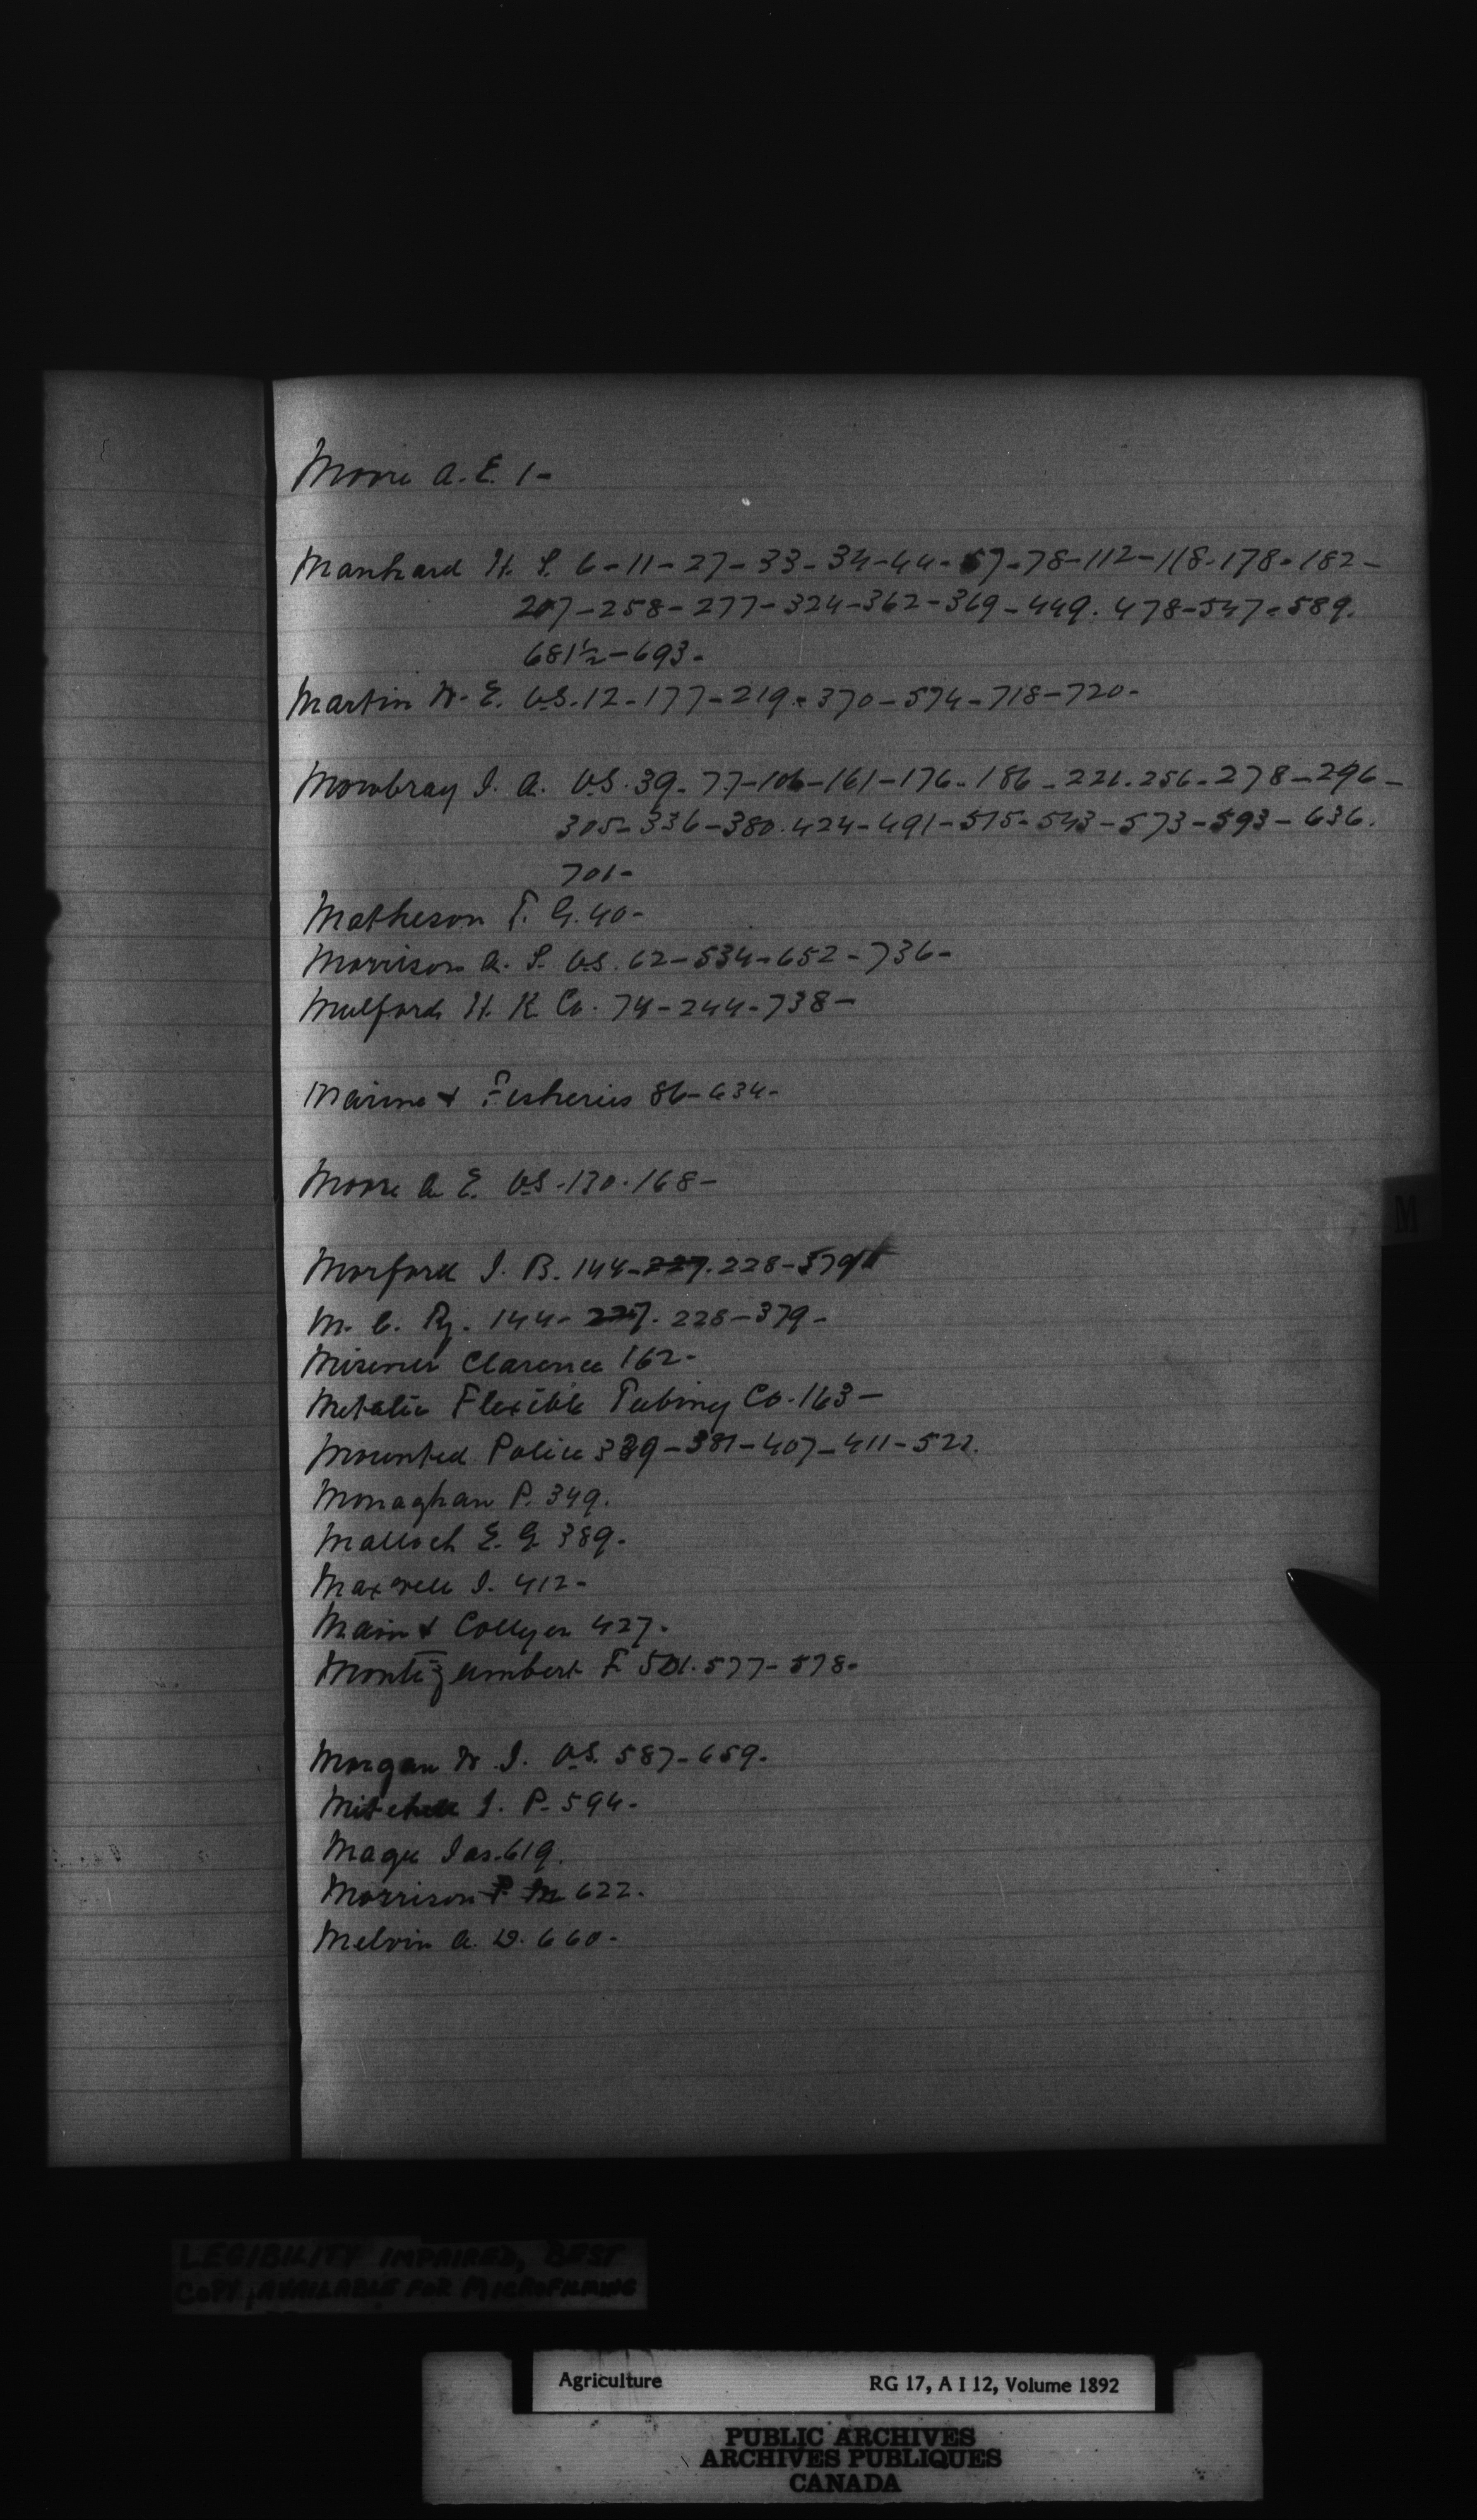 Moore A. E. 1-
Manhard H. S. 6-11-27-33-34-44-57-78-112-118-178-182-
207-258-277-324-362-369-449. 478-547-589.
681½-693-
Martin W. E. V.S. 12-177-219-370-574-718-720-
Mowbray J. A. V.S. 39-77-106-161-176-186-221.256-278-296-
305-336-380.424-491-515-543-573-593-636.
701-
Matheson T. G. 40-
Morrison A. S. V.S. 62-534-652-736-
Mulford H. K. Co. 74-244-738-
Marine & Fisheries 86-634-
Moore A E. V.S. 130.168-
Morford J. B. 144-227.228-379
M. C. Ry. 144-227. 228-379-
Misener Clarence 162-
Metalic Flexible Tubing Co. 163-
Mounted Police 339-381-407-411-522.
Monaghan P. 349.
Malloch E. G. 389-
Maxwell J. 412-
Main & Collyer 427.
Montizambert F. 501.577-578-
Morgan W. J. V.S. 587-659-
Mitchell J. P. 594-
Magee Jas. 619.
Morrison 622.
Melvin A. D. 660-
M
LEGIBILITY IMPAIRED, BEST
COPY AVAILABLE FOR MICROFILMING
Agriculture RG 17, A I 12, Volume 1892
PUBLIC ARCHIVES
ARCHIVES PUBLIQUES
CANADA